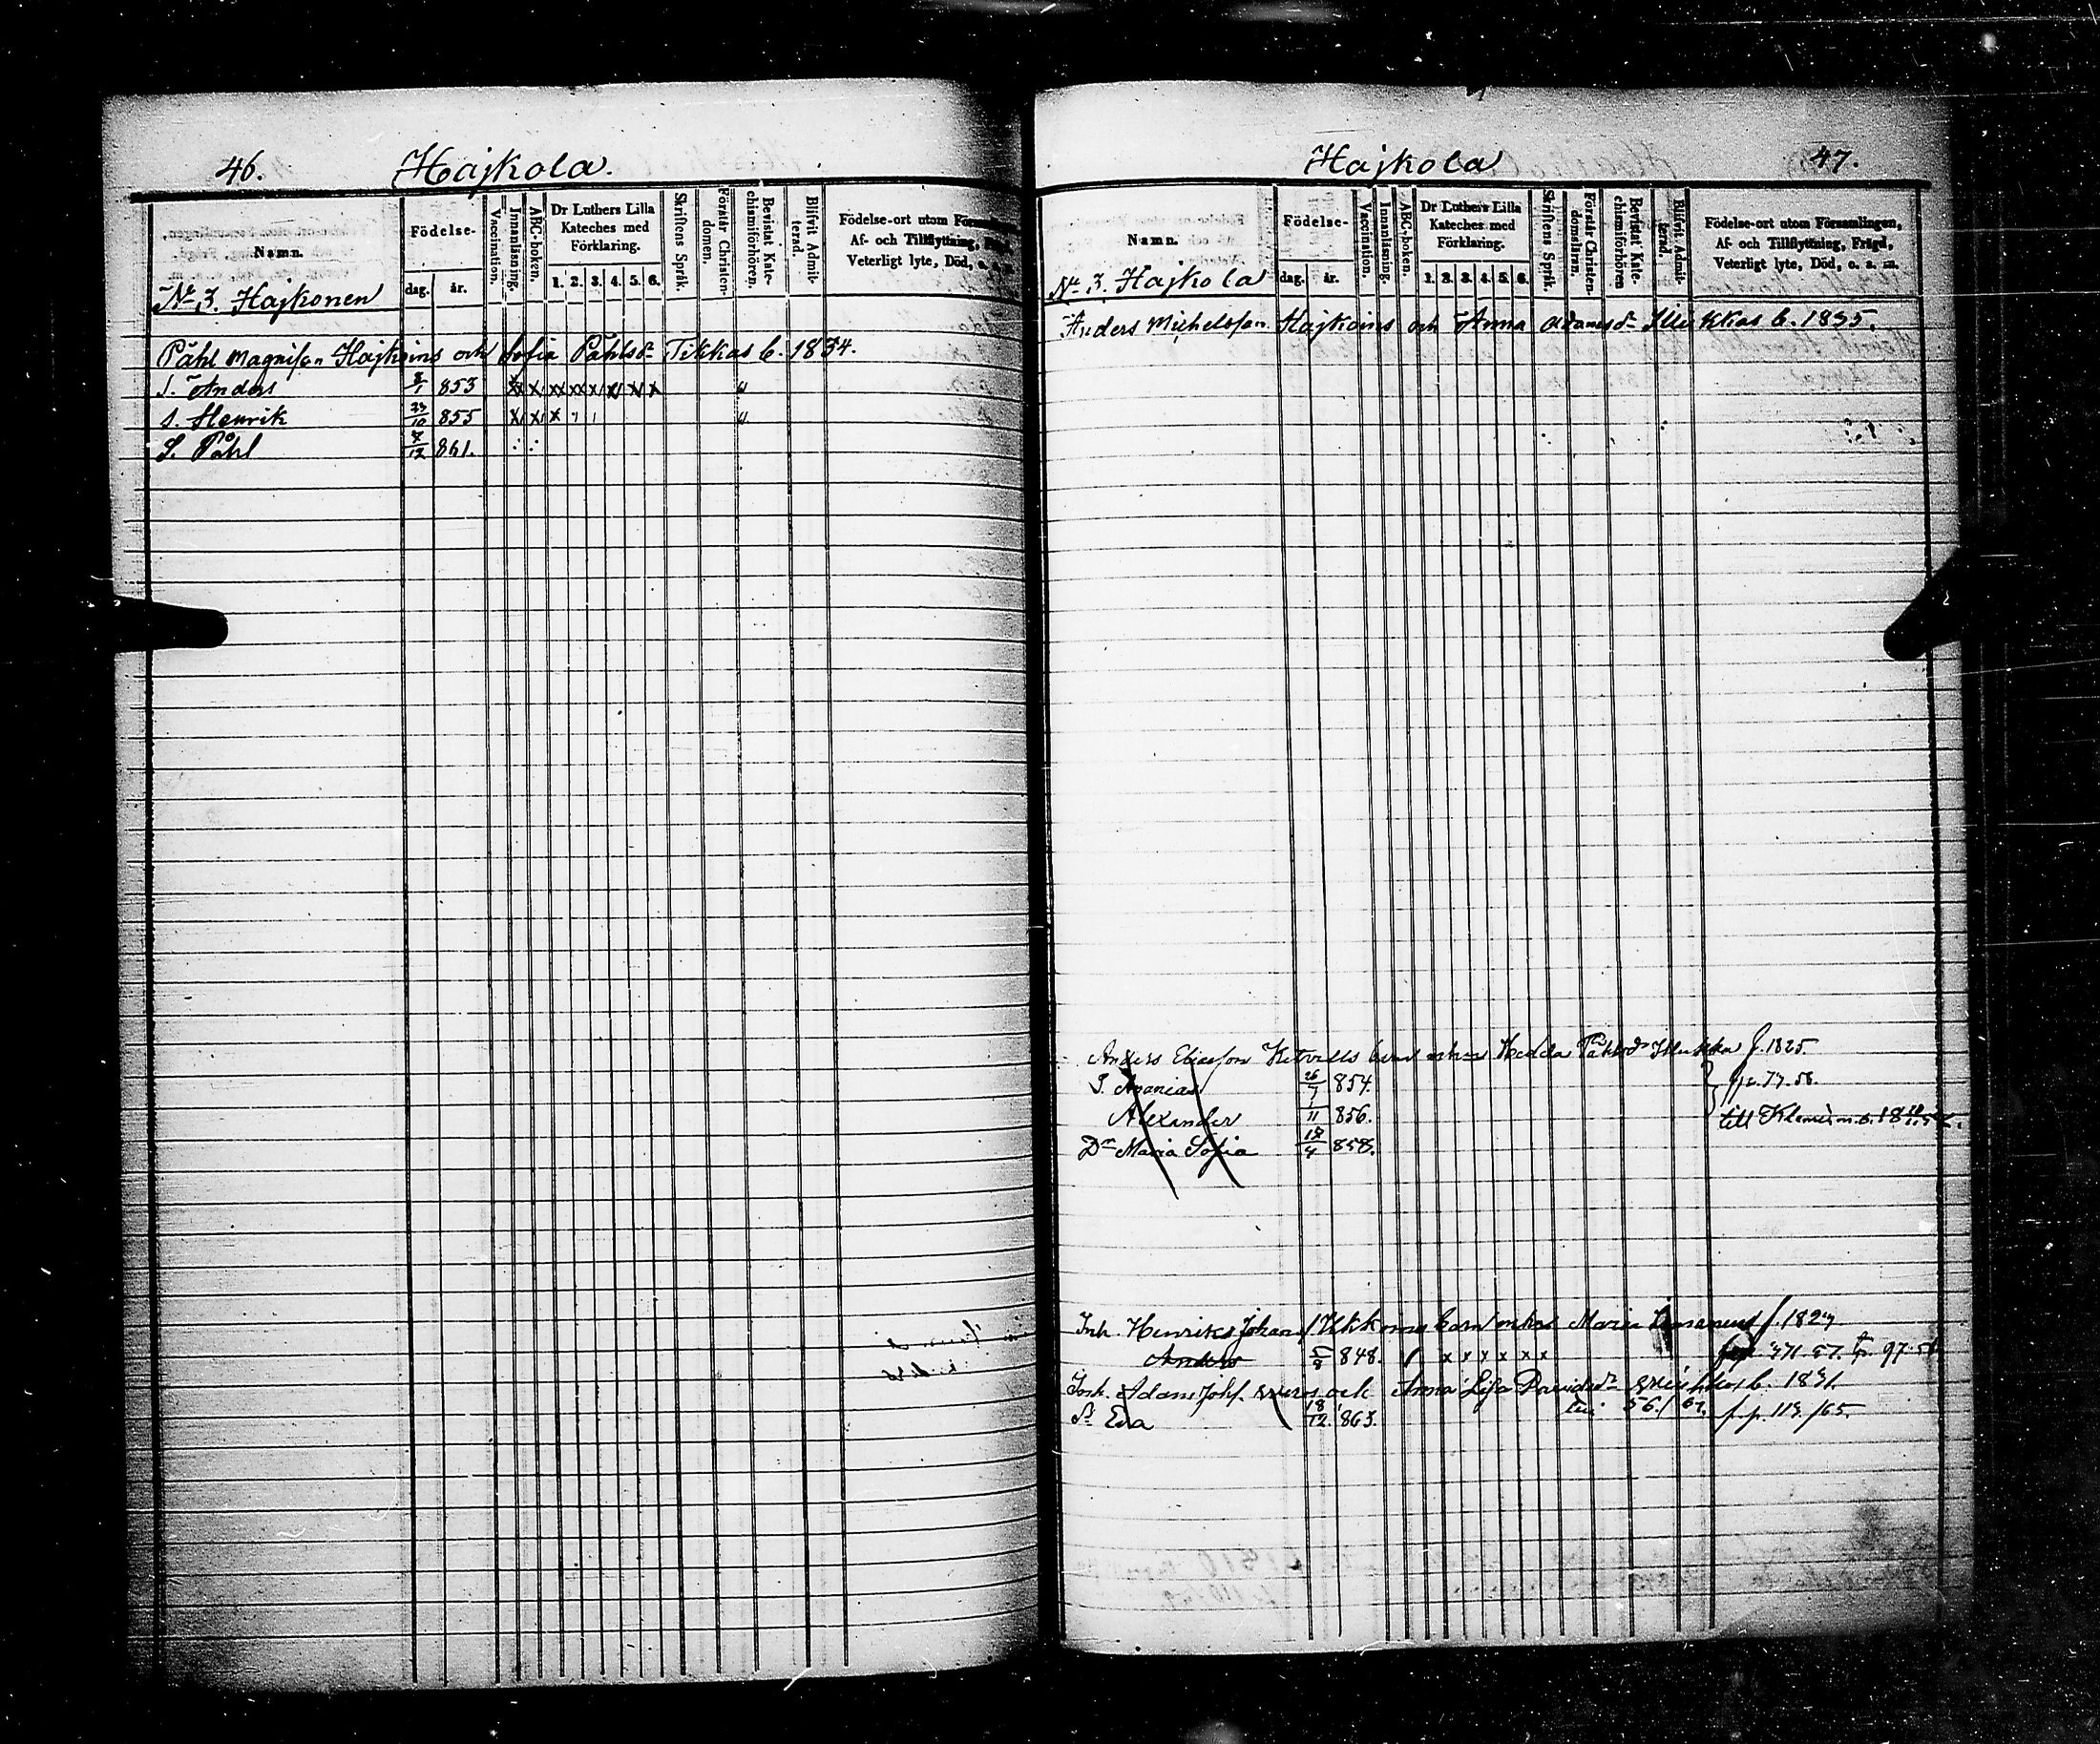 46. Hajkola.
Namn.
Födelse-
dag. år.
Vaccination.
Innanläsning.
ABC-boken.
Dr Luthers Lilla Kateches med Förklaring.
1. 2. 3. 4. 5. 6.
Skriftens Språk.
Förstår Christendomen.
Bevistat Katechismiförhören.
Blifvit Admitterad.
Födelse-ort utom
Af- och Tillflyttning,
Veterligt lyte, Död, o. a. m.
No 3. Hajkonen
Påhl Magnison Hajkoins och Sofia Påhlsdr Tikkas b. 1834.
S. Anders 8/1 853
S. Henrik 23/10 855
S. Påhl 7/12 861.
Hajkola 47.
Namn.
Födelse-
dag. år.
Vaccination.
Innanläsning.
ABC-boken.
Dr Luthers Lilla Kateches med Förklaring.
1. 2. 3. 4. 5. 6.
Skriftens Språk.
Förstår Christendomsläran.
Bevistat Katechismiförhören
Blifvit Admitterad.
Födelse-ort utom Församlingen,
Af- och Tillflyttning, Frägd,
Veterligt lyte, Död, o. a. m.
No 3. Hajkola
Anders Michelsson Hajkoins och Anna Adamsdr Illukkas b. 1835.
Anders Eliasson barn Hedda Påhlsdr Illukka f. 1825
S. Ananias 26/7 854.
Alexander 1/11 856.
Dr Maria Sofia 18/4 858.
Inh. Henriks Johans barn Maria f. 1827
Anders 5/8 848. x x x x x x 97.58
Inh. Adam Johs. och Anna Lisa Davidsdr b. 1831
Eva 18/12 863. 56./ f.p. 113./65.